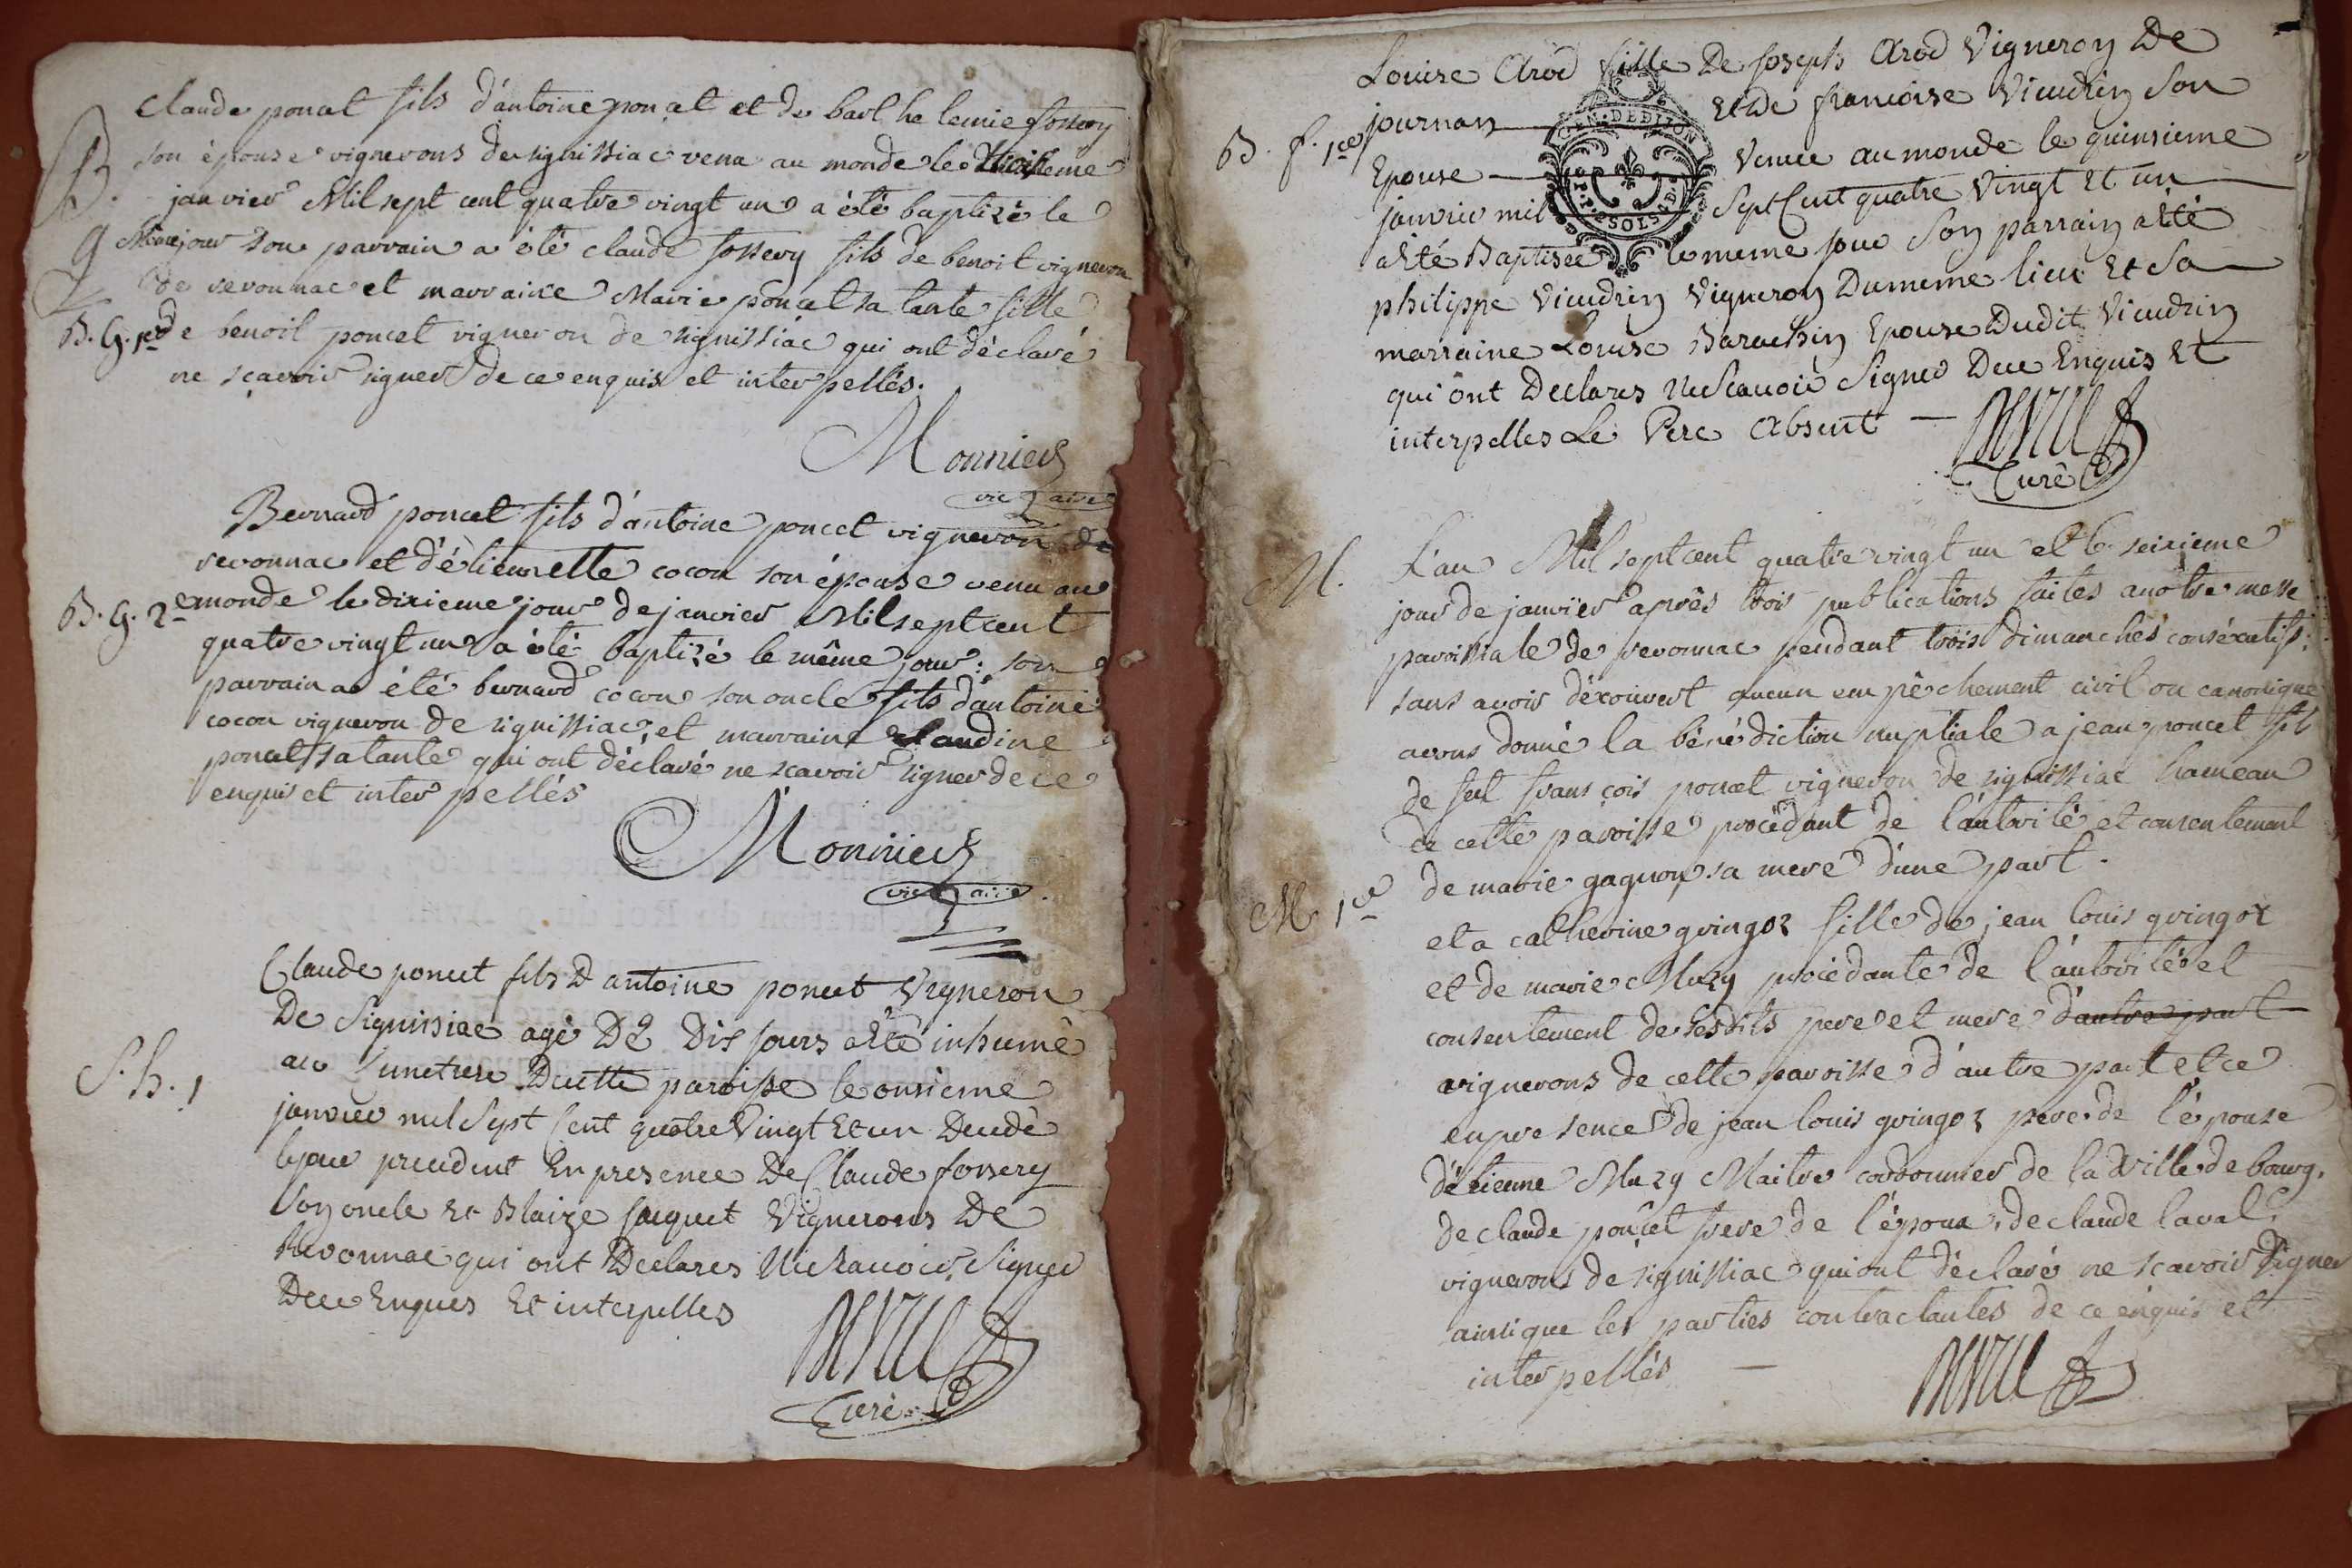 Claude poncet fils d'antoine poncet et de barthelemie fossery
B. son épouse vignerons de signissiac venu au monde le
janvier Mil sept cent quatre vingt un a été baptizé le
même jour son parrain a été claude fossery fils de benoit vigneron
de revonnac et marraine Marie poncet sa tante fille
B. g. 1er de benoit poncet vigneron de signissiac qui ont déclaré
ne sçavoir signer de ce enquis et interpellés.
Monnier
vicaire
Bernard poncet fils d'antoine poncet vigneron de
revonnac et d'étiennette cocon son épouse venu au
B. g. 2e monde le dixieme jour de janvier Mil sept cent
quatre vingt un a été baptizé le même jour : son
parrain a été bernard cocon son oncle fils d'antoine
cocon vigneron de signissiac, et marraine claudine
poncet sa tante qui ont déclaré ne scavoir signer de ce
enquis et interpellés
Monnier
vicaire
Claude poncet fils D antoine poncet Vigneron
De Signissiac agé De Dix jours a Eté inhumé
S. h. 1 au Cimetiere Decette paroisse le onsieme
janvier mil Sept Cent quatre Vingt Et un Decedé
le jour precedent En presence De Claude fossery
Son oncle Et Blaize jacquet Vignerons De
Revonnac qui ont Declares Ne Scavoir Signer
Dece Enquis Et interpelles
Curé
Louise Arod fille De joseph Arod Vigneron De
B. f. 1ere journan Et de francoise Vieudrin Son
Epouse Venue au monde le quinsieme
janvier mil Sept Cent quatre Vingt Et un
a Eté Baptisée le meme jour Son parrain a Eté
philippe Vieudrin Vigneron Dumeme lieu Et Sa
marraine Louise Barachin Epouse Dudit Vieudrin
qui ont Declares Ne Scavoir Signer Dece Enquis Et
interpelles Le Pere Absent
Curé
GEN. DE DIJON
SOLS
M. L'an Mil sept cent quatre vingt un et le seizieme
jour de janvier après trois publications faites a notre messe
parroissiale de revonnac pendant trois dimanches consécutifs.
sans avoir découvert aucun empêchement civil ou canonique
avons donné la bénédiction nuptiale a jean poncet fils
de feu françois poncet vigneron de signissiac hameau
de cette paroisse procédant de l'autorité et consentement
M. 1er de marie gagnon sa mere d'une part.
et a catherine gringoz fille de jean louis gringoz
et de marie Muzy procédante de l'autorité et
consentement de ses dits pere et mere d'autre part
vignerons de cette paroisse d'autre part et ce
en presence de jean louis gringoz pere de l'épouse
d'étienne Muzy Maitre cordonnier de la ville de bourg,
de claude poncet frere de l'époux, de claude laval,
vignerons de signissiac qui ont déclaré ne scavoir signer
ainsi que les parties contractantes de ce enquis et
interpellés